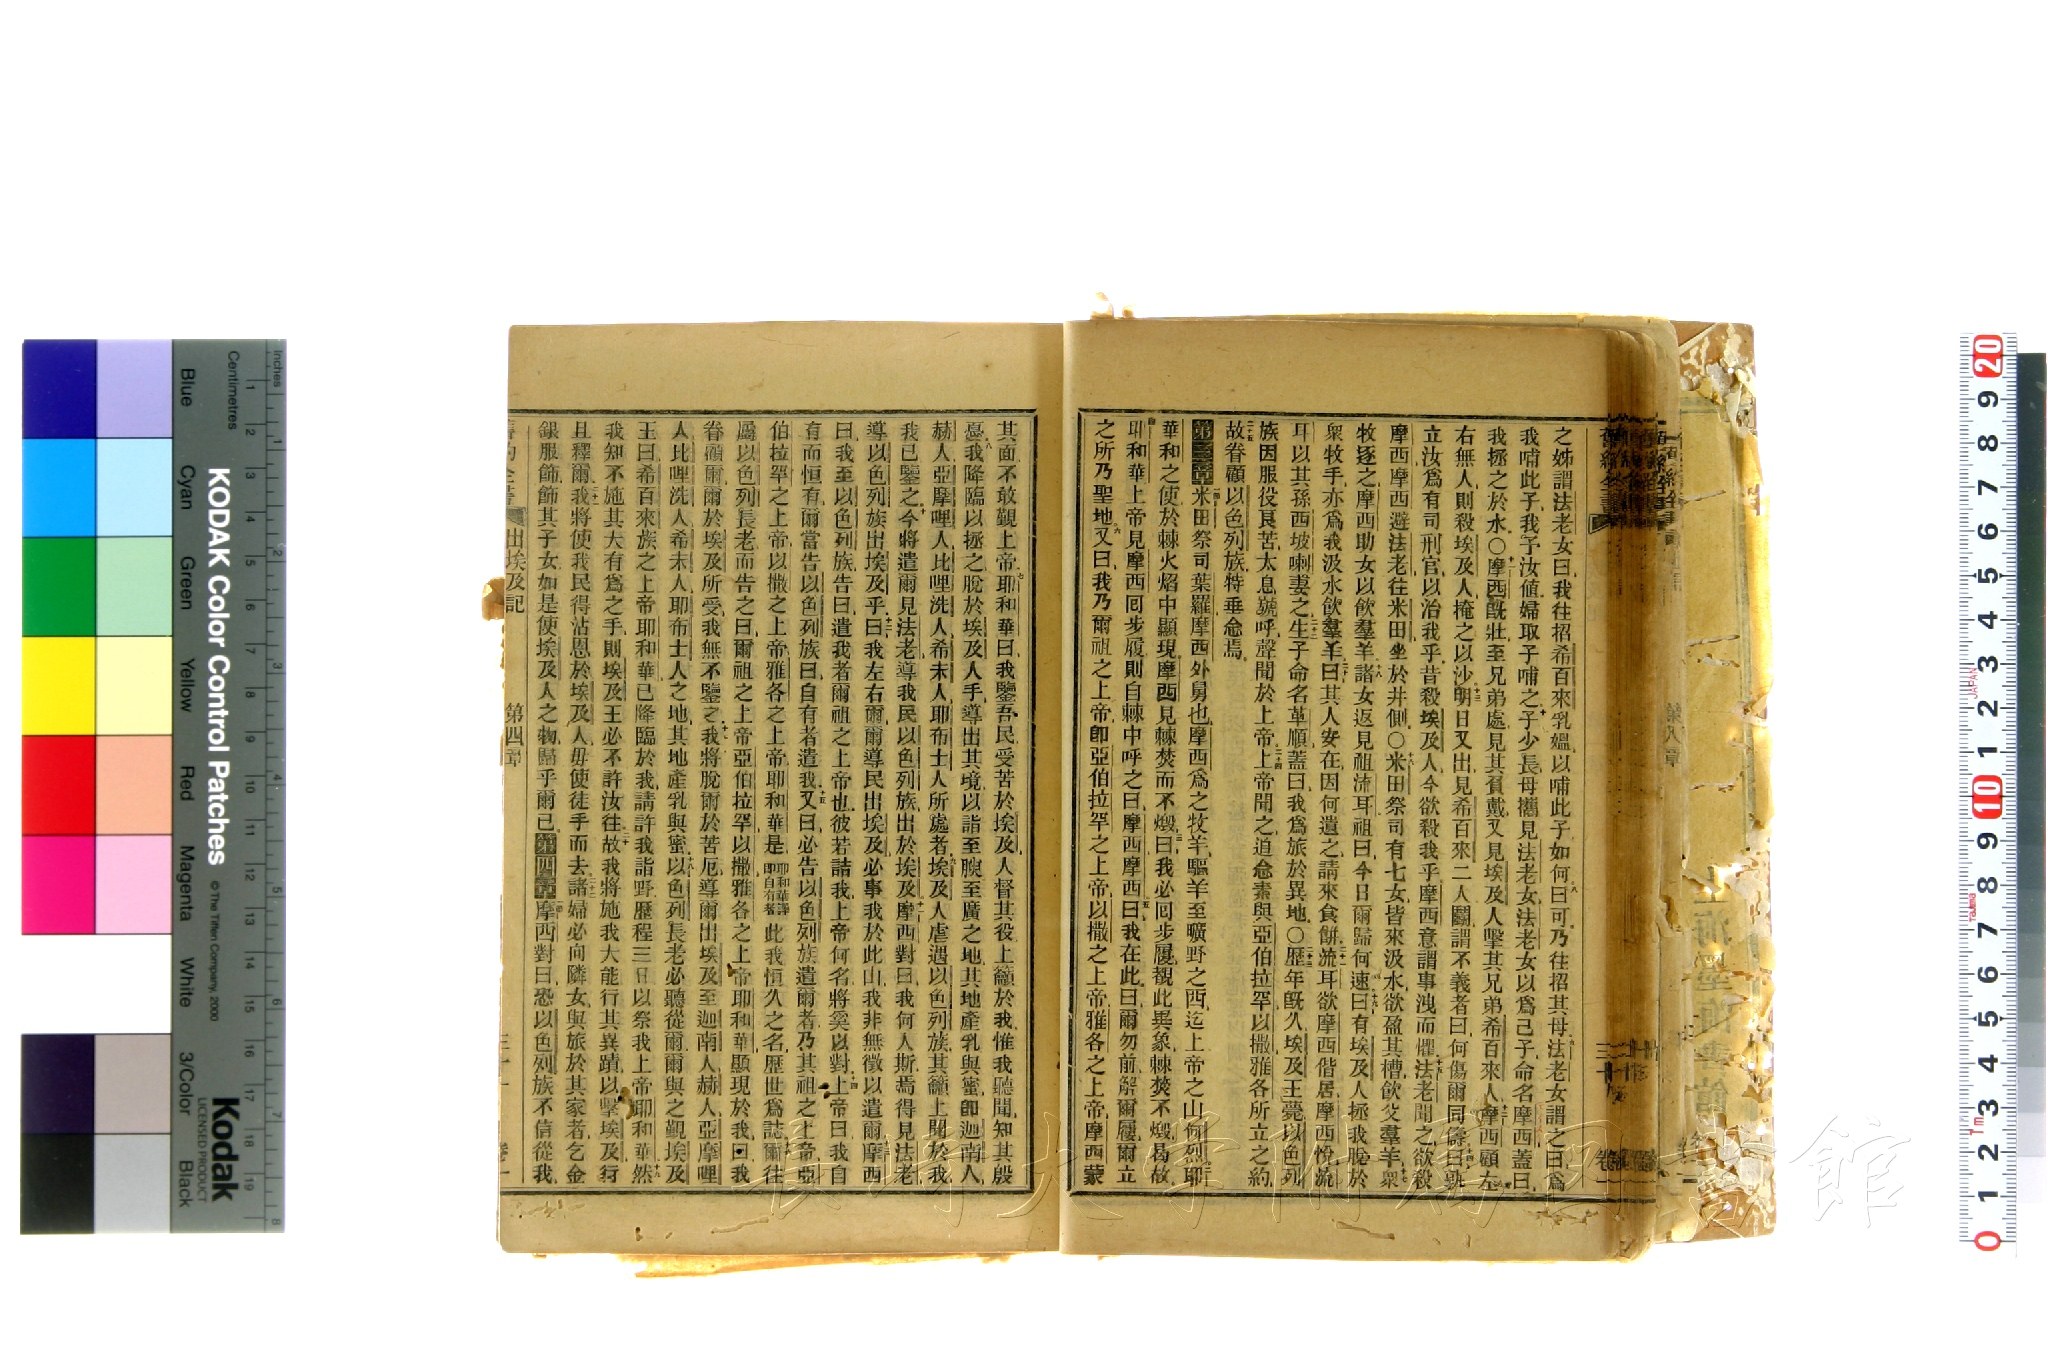 之姊謂法老女曰我往招希百來乳媼以哺此子如何曰可乃往招其母法老女謂之曰爲
我哺此子我予汝値婦取子哺之子少長母攜見法老女法老女以爲己子命名摩西蓋曰
我拯之於水○摩西旣壯至兄弟處見其負戴又見埃及人擊其兄弟希百來人摩西顧左
右無人則殺埃及人掩之以沙明日又出見希百來二人鬬謂不義者曰何傷爾同儕曰孰
立汝爲有司刑官以治我乎昔殺埃及人今欲殺我乎摩西意謂事洩而懼法老聞之欲殺
摩西摩西避法老往米田坐於井側○米田祭司有七女皆來汲水欲盈其槽飲父羣羊衆
牧逐之摩西助女以飲羣羊諸女返見祖流耳祖曰今日爾歸何速曰有埃及人拯我脫於
衆牧手亦爲我汲水飲羣羊曰其人安在因何遺之請來食餅流耳欲摩西偕居摩西悅流
耳以其孫西坡喇妻之生子命名革順蓋曰我爲旅於異地○歷年旣久埃及王薨以色列
族因服役艮苦太息號呼聲聞於上帝上帝聞之追念素與亞伯拉罕以撒雅各所立之約
故眷顧以色列族特垂念焉
第三章米田祭司葉羅摩西外舅也摩西爲之牧羊驅羊至曠野之西迄上帝之山何烈耶
華和之使於棘火焰中顯現摩西見棘焚而不燬曰我必回步履觀此異象棘焚不燬曷故
耶和華上帝見摩西回步履則自棘中呼之曰摩西摩西曰我在此曰爾勿前解爾屨爾立
之所乃聖地又曰我乃爾祖之上帝卽亞伯拉罕之上帝以撒之上帝雅各之上帝摩西蒙
其面不敢覲上帝耶和華曰我鑒吾民受苦於埃及人督其役上籲於我惟我聽聞知其殷
憂我降臨以拯之脫於埃及人手導出其境以詣至腴至廣之地其地產乳與蜜卽迦南人
赫人亞摩哩人比哩洗人希未人耶布士人所處者埃及人虐遇以色列族其籲上聞於我
我已鑒之今將遣爾見法老導我民以色列族出於埃及摩西對曰我何人斯焉得見法老
導以色列族出埃及乎曰我左右爾爾導民出埃及必事我於此山我非無徵以遣爾摩西
曰我至以色列族告曰遣我者爾祖之上帝也彼若詰我上帝何名將奚以對上帝曰我自
有而恒有爾當告以色列族曰自有者遣我又曰必告以色列族遣爾者乃其祖之上帝亞
伯拉罕之上帝以撒之上帝雅各之上帝耶和華是耶和華譯卽自有者此我恒久之名歷世爲誌爾往
屬以色列長老而告之曰爾祖之上帝亞伯拉罕以撒雅各之上帝耶和華顯現於我曰我
眷顧爾爾於埃及所受我無不鑒之我將脫爾於苦厄導爾出埃及至迦南人赫人亞摩哩
人比哩洗人希未人耶布士人之地其地產乳與蜜以色列長老必聽從爾爾與之覲埃及
王曰希百來族之上帝耶和華已降臨於我請許我詣野歷程三日以祭我上帝耶和華然
我知不施其大有爲之手則埃及王必不許汝往故我將施我大能行其異蹟以擊埃及行
且釋爾我將使我民得沾恩於埃及人毋使徒手而去諸婦必向隣女與旅於其家者乞金
銀服飾飾其子女如是使埃及人之物歸乎爾已第四章摩西對曰恐以色列族不信從我
舊約全書 出埃及記 第四章
長崎大学附属図書館
KODAK Color Control Patches
© The Tiffen Company, 2000
Kodak
LICENSED PRODUCT
Inches
Centimetres
Blue
Cyan
Green
Yellow
Red
Magenta
White
3/Color
Black